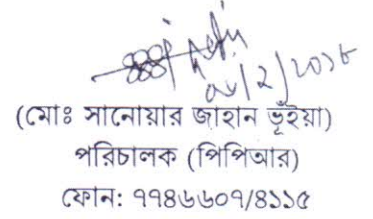 (মোঃ সানোয়ার জাহান ভূঁইয়া)
পরিচালক (পিপিআর)
ফোন: ৭৭৪৬৬০৭/৪১১৫